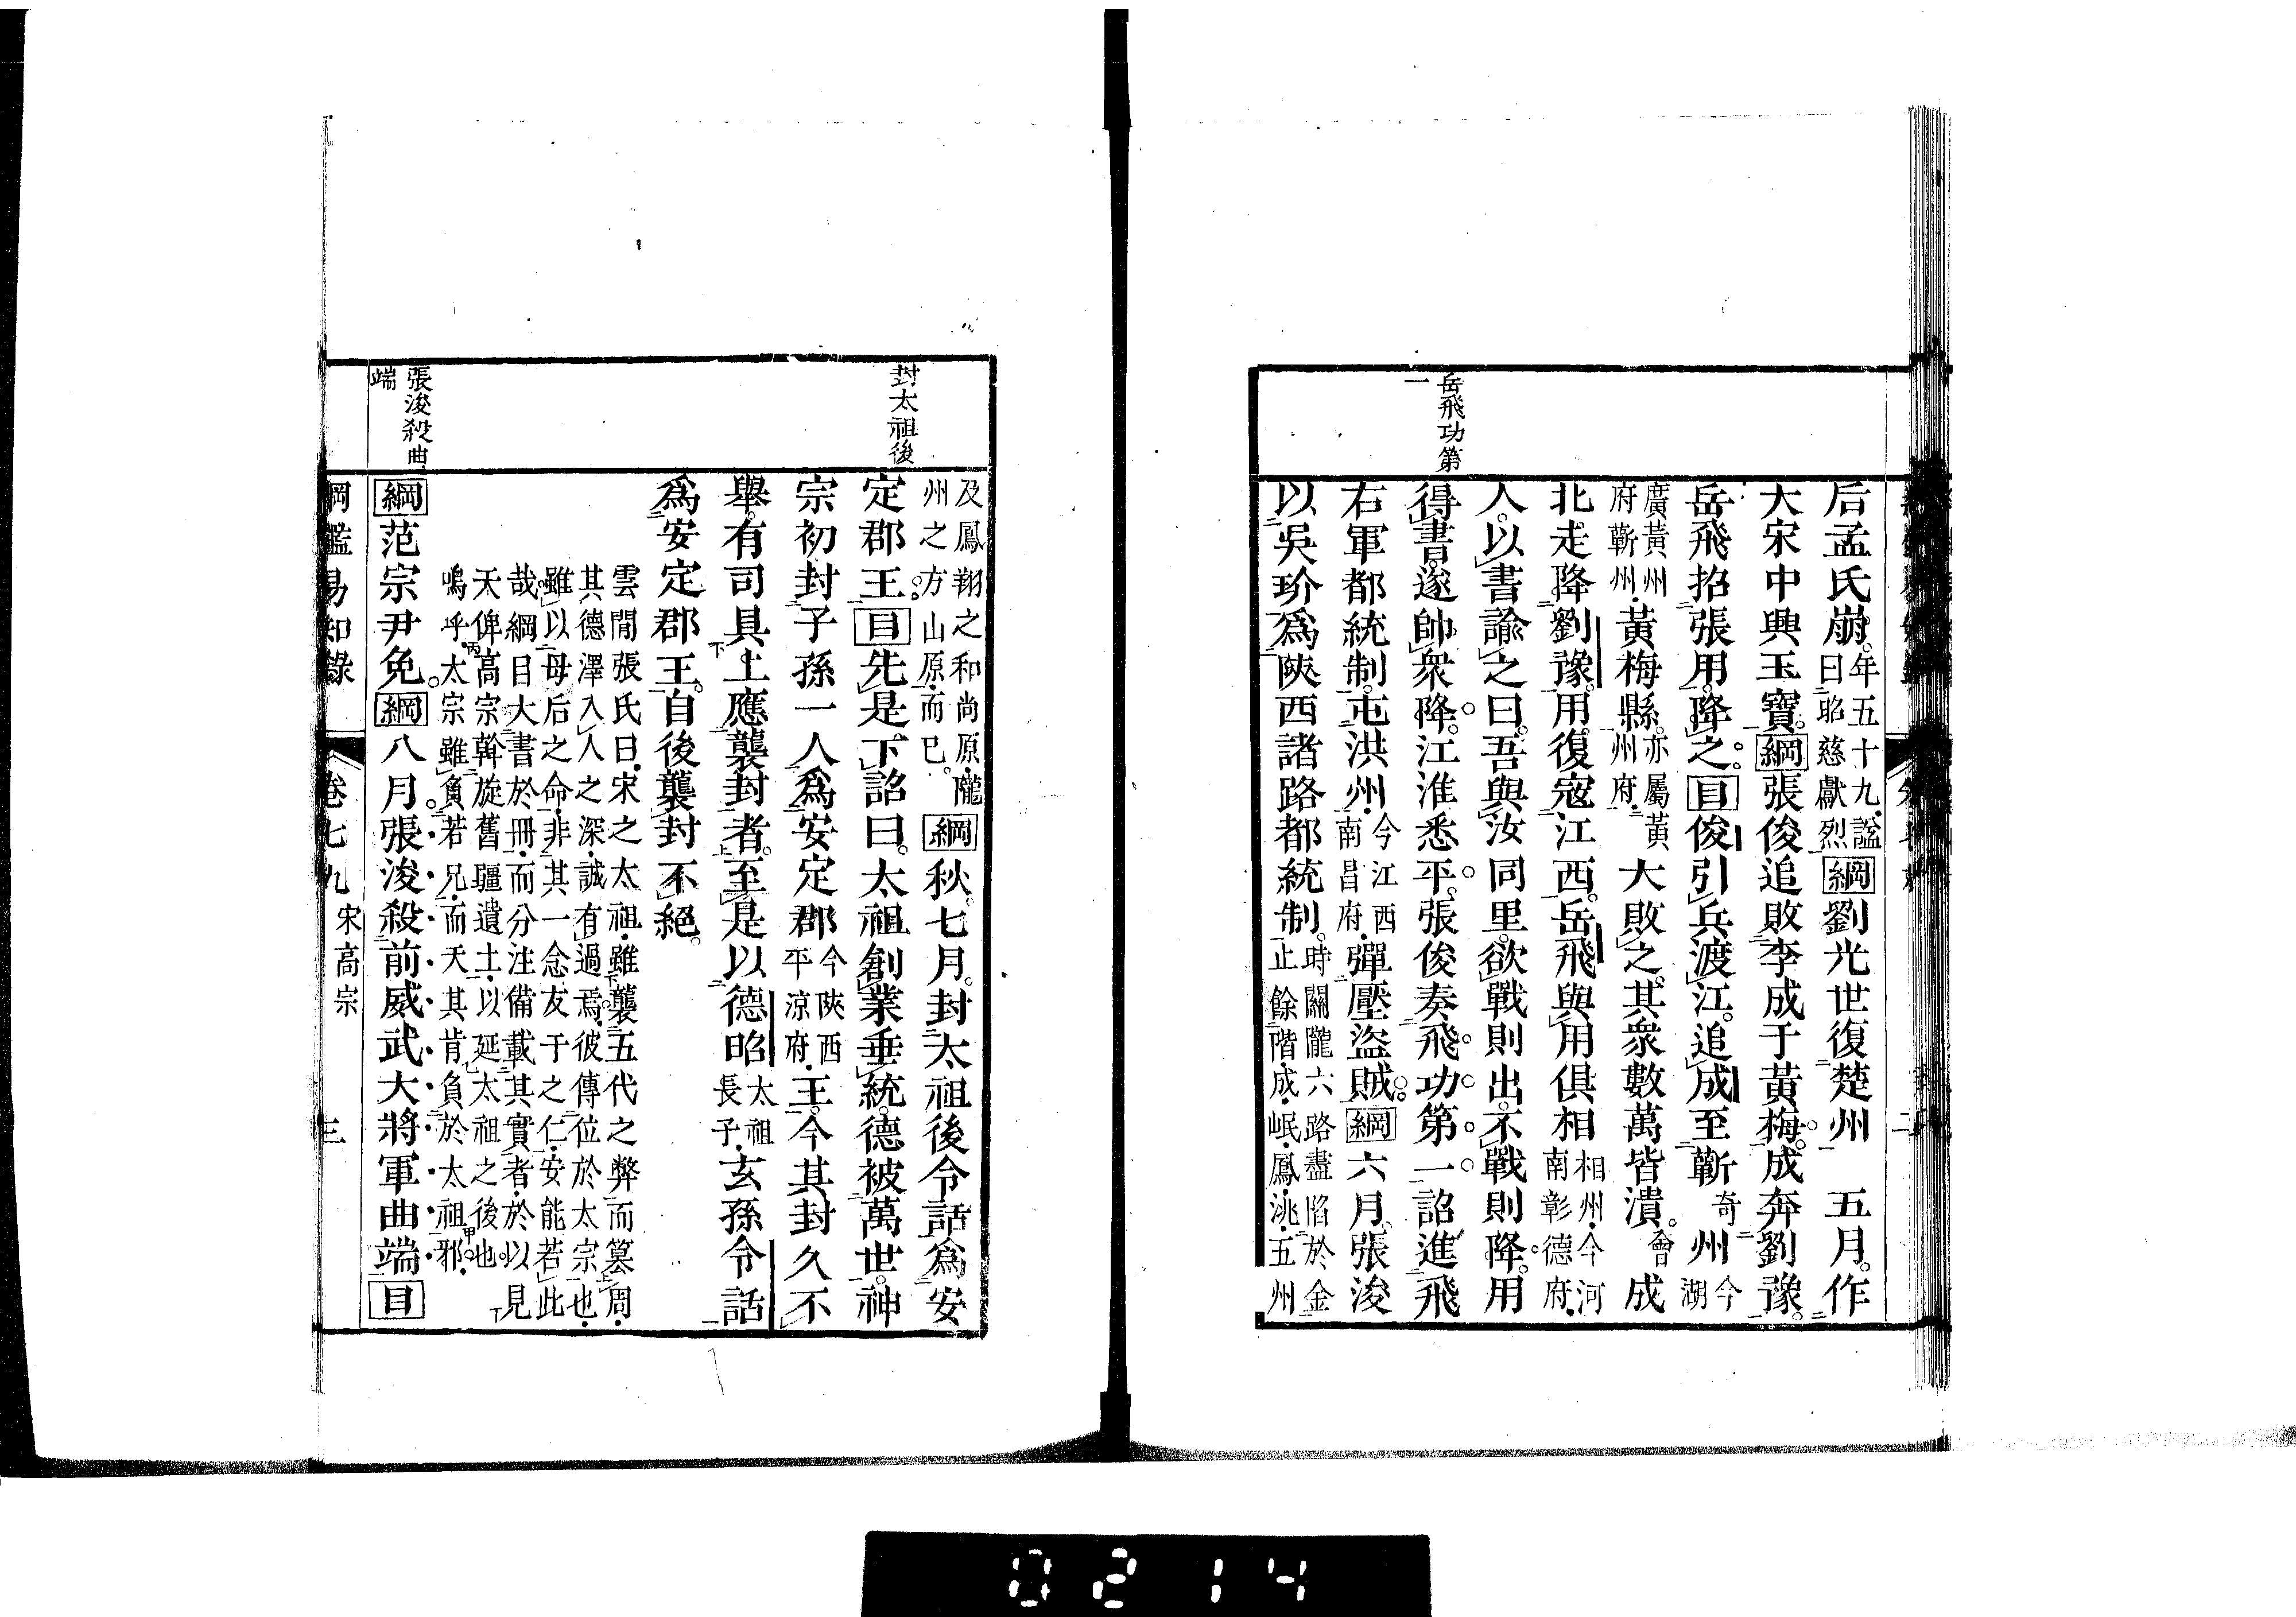 岳飛功第
一
后孟氏崩。年五十九、諡曰昭慈獻烈綱劉光世復楚州 五月。作
大宋中興玉寶。綱張俊追敗李成于黃梅。成奔劉豫。
岳飛招張用。降之。目俊引兵渡江。追成至蘄奇州今湖
廣黃州府蘄州黃梅縣。亦屬黃州府大敗之。其衆數萬皆潰。會成
北走降劉豫。用復寇江西。岳飛與用俱相相州今河南彰德府
人。以書諭之曰。吾與汝同里。欲戰則出。不戰則降。用
得書。遂帥衆降。江淮悉平。張俊奏飛功第一。詔進飛
右軍都統制。屯洪州今江西南昌府彈壓盜賊。綱六月。張浚
以吳玠爲陝西諸路都統制。時關隴六路盡陷於金止餘階成岷鳳洮五州
封太祖後
張浚殺曲
端
及鳳翔之和尚原隴州之方山原而已。綱秋。七月。封太祖後令話爲安
定郡王。目先是下詔曰。太祖創業垂統。德被萬世。神
宗初封子孫一人爲安定郡今陝西平涼府王。今其封久不
舉。有司具上應襲封者。至是以德昭太祖長子玄孫令話
爲安定郡王。自後襲封不絕。
雲閒張氏曰宋之太祖雖襲五代之弊而篡周
其德澤入人之深誠有過焉彼傳位於太宗也
雖以母后之命非其一念友于之仁安能若此
哉綱目大書於冊而分注備載其實者於以見
天俾高宗斡旋舊疆遺土以延太祖之後也
鳴乎太宗雖負若兄而天其肯負於太祖邪
綱范宗尹免。綱八月。張浚殺前威武大將軍曲端目
綱鑑易知錄 卷七九 宋高宗 三
0214